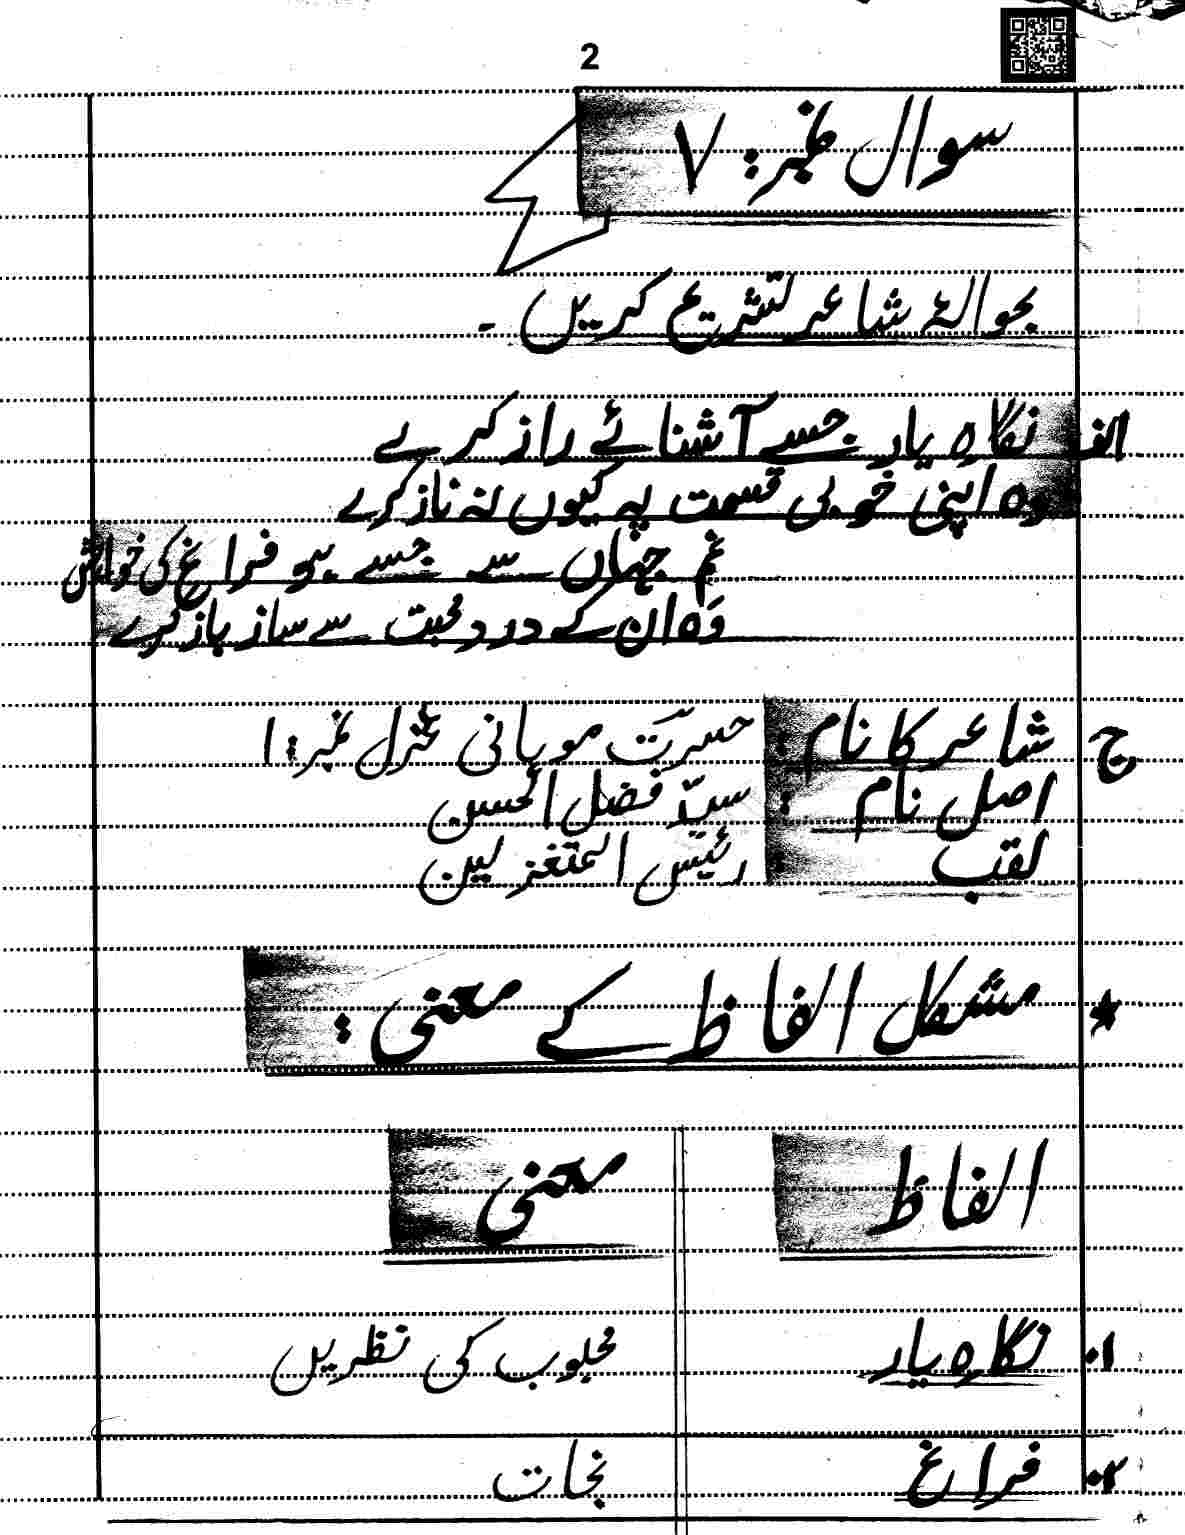 2
سوال نمبر: ۷
بحوالۂ شاعر تشریح کریں ۔
الف نگاہ یار جسے آشنائے راز کرے
وہ اپنی خوبی قسمت پہ کیوں نہ ناز کرے
غم جہاں سے جسے ہو فراغ کی خواہش
وہ ان کے درد محبت سے ساز باز کرے
ج شاعر کا نام : حسرت موہانی غزل نمبر: ۱
اصل نام : سید فضل الحسن
لقب : رئیس المتغزلین
★ مشکل الفاظ کے معنی :
الفاظ معنی
۱. نگاہ یار محبوب کی نظریں
۲. فراغ نجات